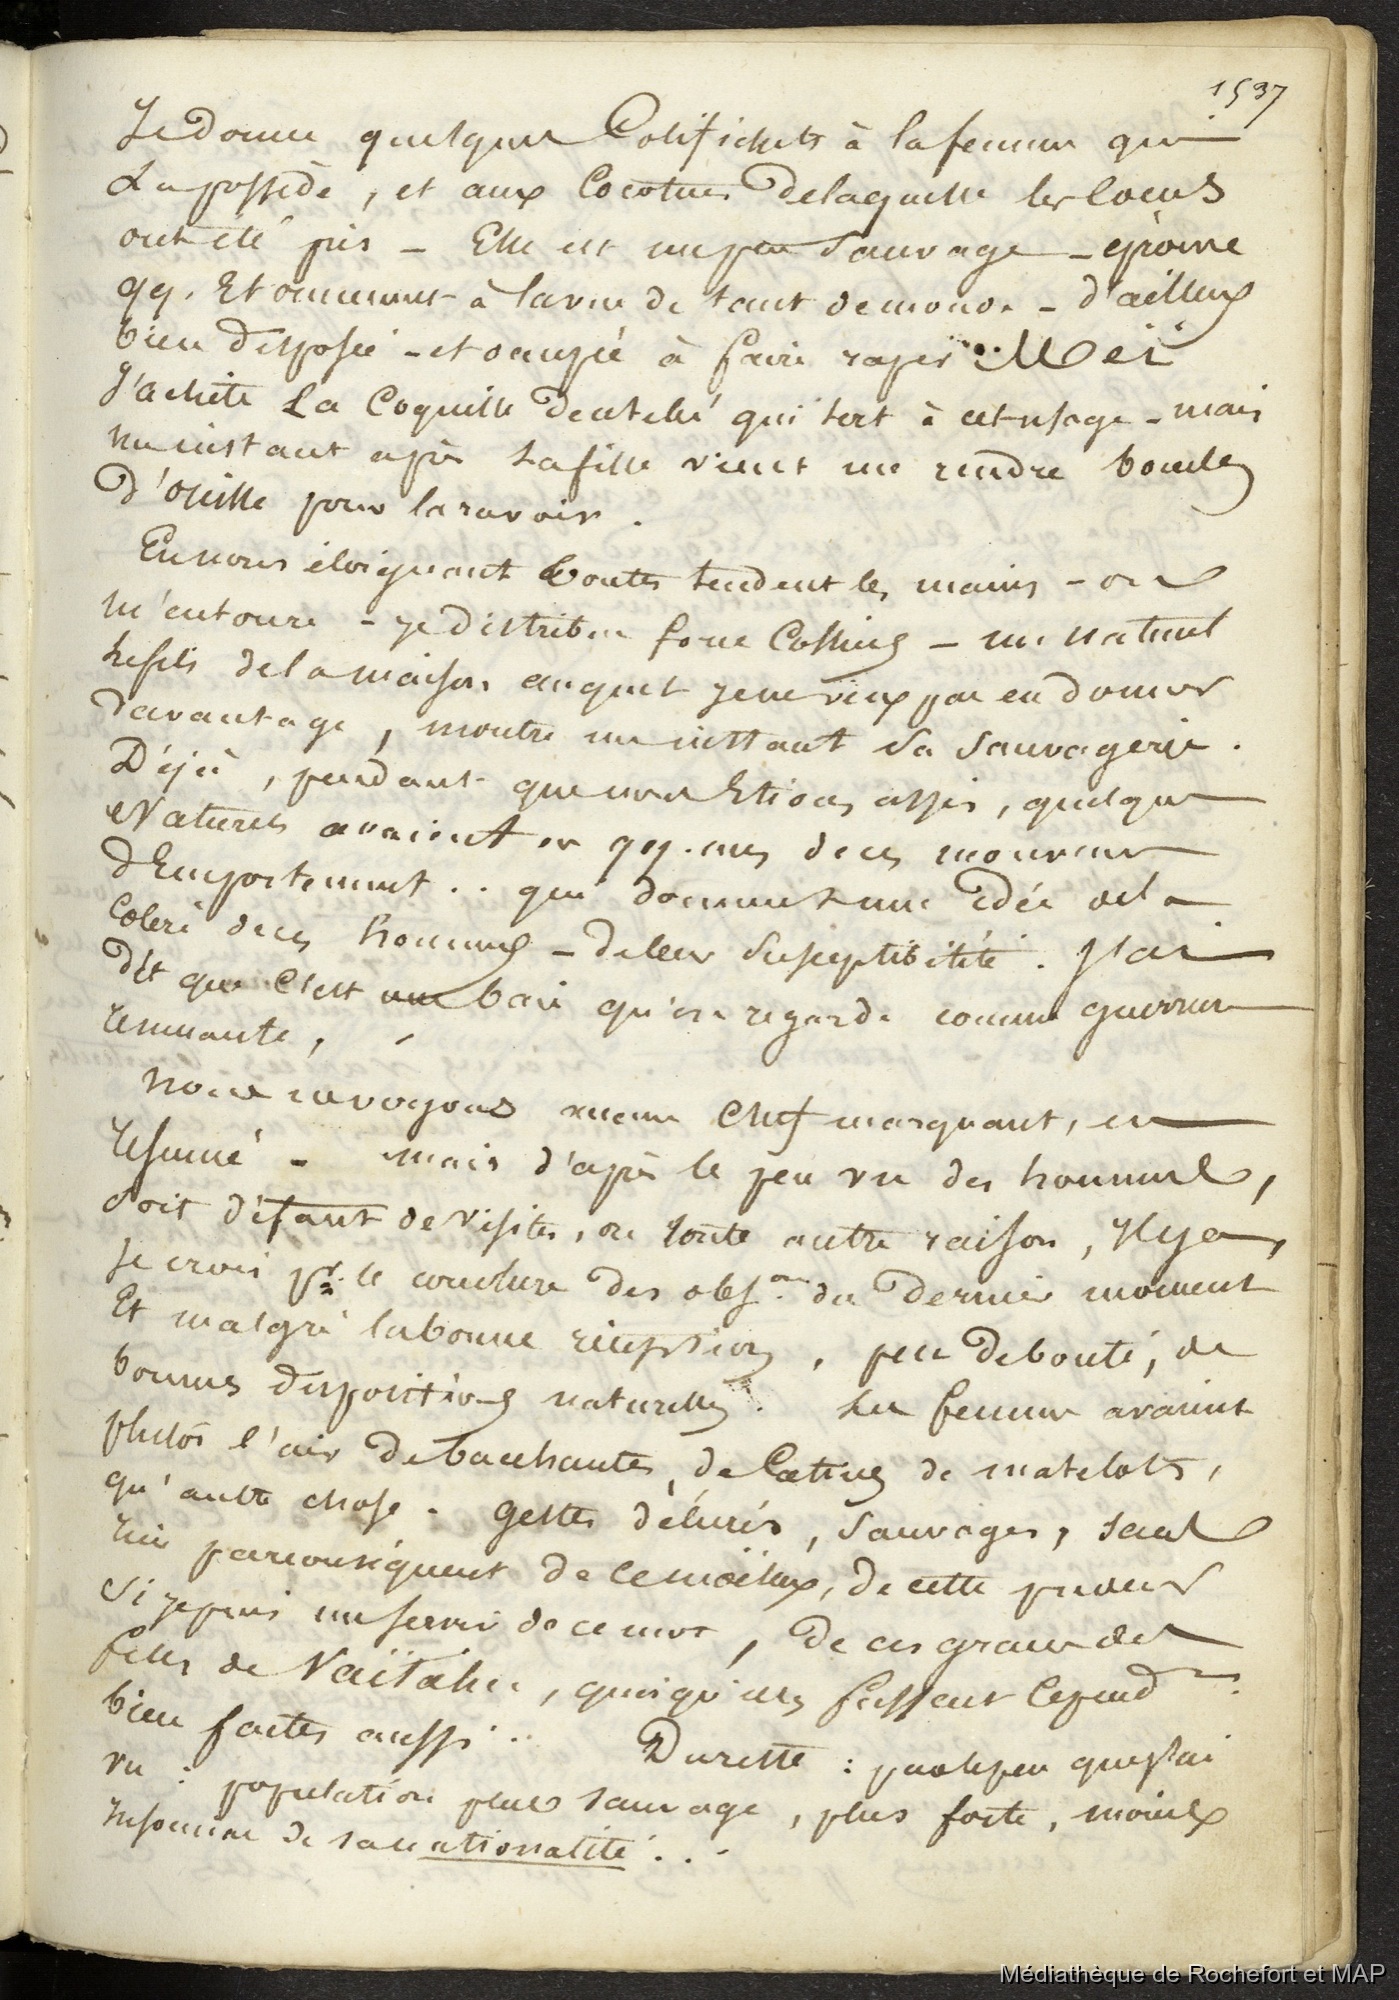 1537
Je donne quelques Colifichets à la femme qui
La possède, et aux Cocotiers delaquelle les cocos
ont été pris - Elle est un peu Sauvage - éprouve
qq. Etonnement à la vue de tant de monde - d'ailleurs
bien disposée - et occupée à faire raper Meï
J'achète La Coquille dentelée qui sert à cet usage - mais
un instant après La fille vient me rendre boucles
d'oreille pour la ravoir.
En nous éloignant toutes tendent les mains - on
m'entoure - je distribue force Colliers - un naturel
Le fils de la maison auquel je ne veux pas en donner
davantage, montre un instant Sa Sauvagerie.
Déjà, pendant que nous Etions assis, quelques
Naturels avaient eu qq.unes de ces mouvemens
d'Emportement .. qui donnent une idée de la
Colère de ces hommes - de leur Susceptibilité. J'ai
Dit que C'est une baie qu'on regarde comme guerrière
remuante,
Nous ne voyons aucun Chef marquant, en
resumé - mais d'après le peu vu des hommes,
Soit défaut de visites, ou toute autre raison, Il y a,
Je crois pr. le conclure des obson. du dernier moment
Et malgré la bonne réception, peu de bonté, de
bonnes dispositions naturelles. Les femmes avaient
plutôt l'air de bacchantes, de Catins de matelots,
qu'autre chose. gestes délurés, Sauvages, sans
rien par conséquent de ce moëlleux, de cette pudeur
Si je puis me servir de ce mot, de ces grandes
filles de Vaïtahu, quoiqu'elles fussent Cepend
bien faites aussi .. Du reste : par le peu que j'ai
vu : population plus sauvage, plus forte, mieux
de sa nationalité . . .
Médiathèque de Rochefort et MAP